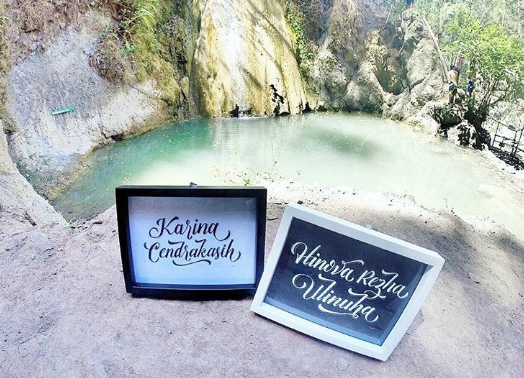 Karina
Cendrakasih
Hinova Rezha
Ulinuha